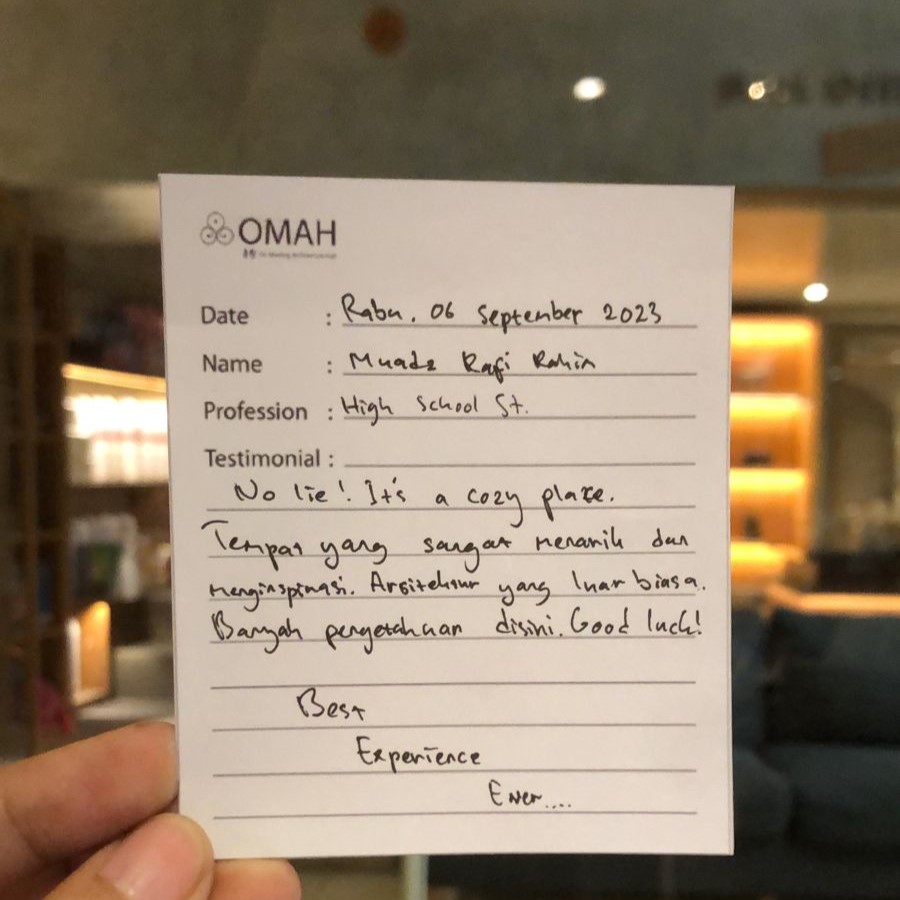 OMAH
Date : Rabu, 06 September 2023
Name : Muadz Rafi Rahim
Profession : High School St.
Testimonial :
No lie! It's a cozy place.
Tempat yang sangat menarik dan
menginspirasi. Arsitektur yang luar biasa.
Banyak pengetahuan disini. Good luck!
Best
Experience
Ever....